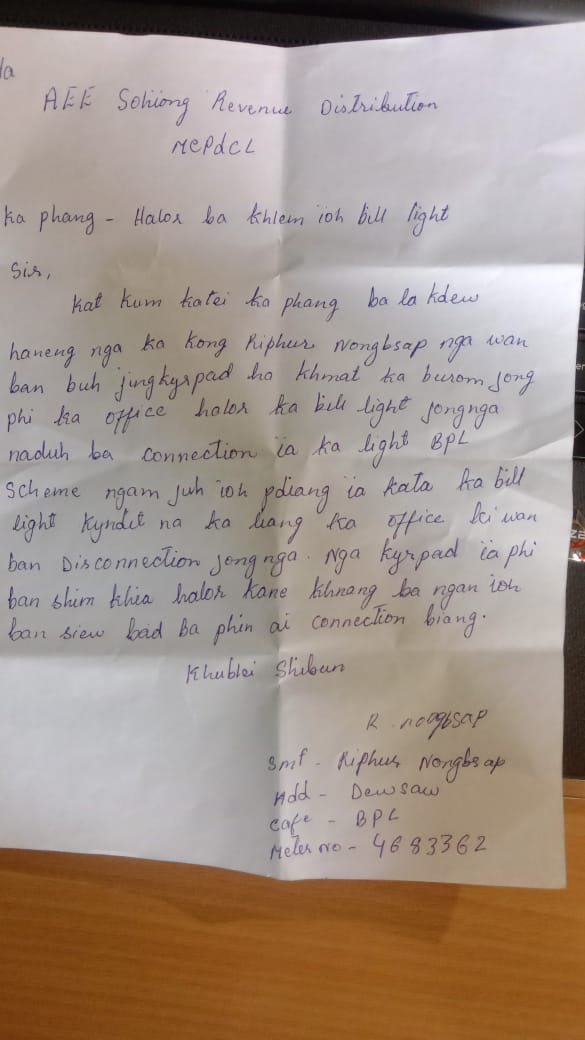 AEE Sohiong Revenue Distribution
MePdCL
ka phang - Halor ba khlem ioh bill light
Sir,
Kat kum katei ka phang ba la kdew
haneng nga ka kong Riphus Nongbsap nga wan
ban buh jingkyrpad ha khmat ka burom jong
phi ka office halor ka bill light jongnga
naduh ba connection ia ka light BPL
Scheme ngam juh ioh pdiang ia kata ka bill
light kyndit na ka liang ka office ki wan
ban Disconnection jong nga. Nga kyrpad ia phi
ban shim khia halor kane khnang ba ngan ioh
ban siew bad ba phin ai connection biang.
Khublei Shibun
R. nongbsap
Smt - Riphus Nongbsap
Add - Dewsaw
Cafe - BPL
Meter no - 4683362